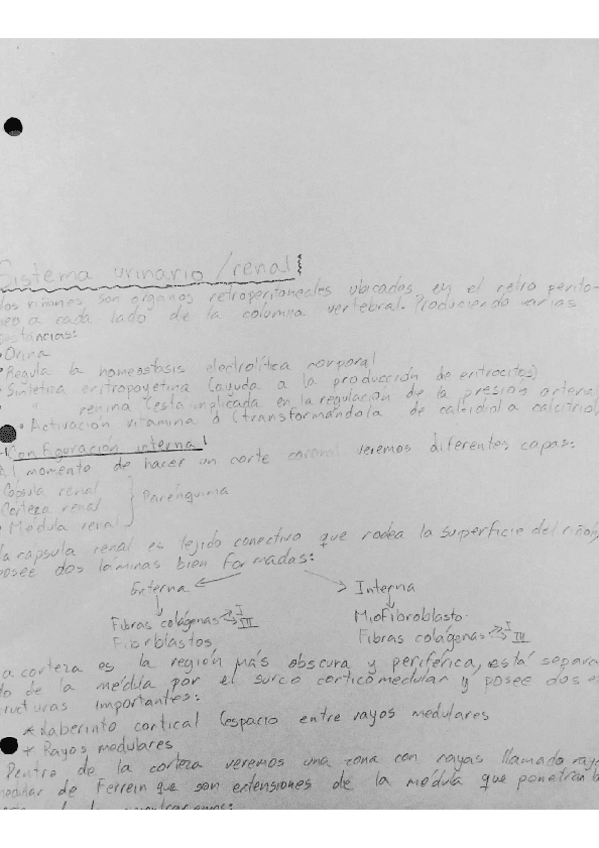 Sistema urinario/renal
los riñones, son organos retroperitoneales ubicados en el retro perito-
neo a cada lado de la columna vertebral. Produciendo varias
sustancias:
• Orina
• Regula la homeostasis electrolítica corporal
• Sintetiza eritropoyetina (ayuda a la producción de eritrocitos)
• " renina (esta implicada en la regulación de la presión arterial
• Activación vitamina d (transformandola de calcidiol a calcitriol)
Configuración interna
Al momento de hacer un corte coronal veremos diferentes capas:
Cápsula renal
Corteza renal } Parénquima
• Médula renal
la capsula renal es tejido conectivo que rodea la superficie del riñón,
posee dos láminas bien formadas:
Externa Interna
Fibras colágenas I III Miofibroblasto
Fibroblastos Fibras colágenas I III
La corteza es la región más obscura y periférica, está separa
do de la médula por el surco corticomedular y posee dos es
tructuras importantes:
* Laberinto cortical (espacio entre rayos medulares
* Rayos medulares
Dentro de la corteza veremos una zona con rayas llamado rayo
medular de Ferrein que son extensiones de la medula que penetran